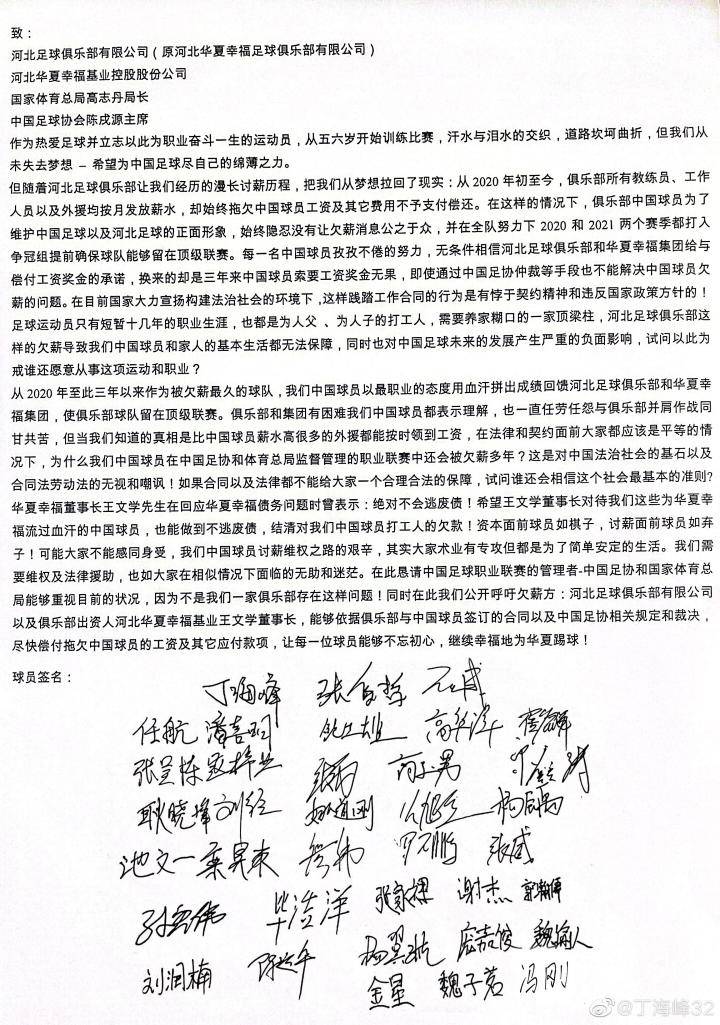 致：
河北足球俱乐部有限公司（原河北华夏幸福足球俱乐部有限公司）
河北华夏幸福基业控股股份公司
国家体育总局高志丹局长
中国足球协会陈戌源主席
作为热爱足球并立志以此为职业奋斗一生的运动员，从五六岁开始训练比赛，汗水与泪水的交织，道路坎坷曲折，但我们从
未失去梦想 – 希望为中国足球尽自己的绵薄之力。
但随着河北足球俱乐部让我们经历的漫长讨薪历程，把我们从梦想拉回了现实：从 2020 年初至今，俱乐部所有教练员、工作
人员以及外援均按月发放薪水，却始终拖欠中国球员工资及其它费用不予支付偿还。在这样的情况下，俱乐部中国球员为了
维护中国足球以及河北足球的正面形象，始终隐忍没有让欠薪消息公之于众，并在全队努力下 2020 和 2021 两个赛季都打入
争冠组提前确保球队能够留在顶级联赛。每一名中国球员孜孜不倦的努力，无条件相信河北足球俱乐部和华夏幸福集团给与
偿付工资奖金的承诺，换来的却是三年来中国球员索要工资奖金无果，即使通过中国足协仲裁等手段也不能解决中国球员欠
薪的问题。在目前国家大力宣扬构建法治社会的环境下，这样践踏工作合同的行为是有悖于契约精神和违反国家政策方针的！
足球运动员只有短暂十几年的职业生涯，也都是为人父 、为人子的打工人，需要养家糊口的一家顶梁柱，河北足球俱乐部这
样的欠薪导致我们中国球员和家人的基本生活都无法保障，同时也对中国足球未来的发展产生严重的负面影响，试问以此为
戒谁还愿意从事这项运动和职业？
从 2020 年至此三年以来作为被欠薪最久的球队，我们中国球员以最职业的态度用血汗拼出成绩回馈河北足球俱乐部和华夏幸
福集团，使俱乐部球队留在顶级联赛。俱乐部和集团有困难我们中国球员都表示理解，也一直任劳任怨与俱乐部并肩作战同
甘共苦，但当我们知道的真相是比中国球员薪水高很多的外援都能按时领到工资，在法律和契约面前大家都应该是平等的情
况下，为什么我们中国球员在中国足协和体育总局监督管理的职业联赛中还会被欠薪多年？这是对中国法治社会的基石以及
合同法劳动法的无视和嘲讽！如果合同以及法律都不能给大家一个合理合法的保障，试问谁还会相信这个社会最基本的准则?
华夏幸福董事长王文学先生在回应华夏幸福债务问题时曾表示：绝对不会逃废债！希望王文学董事长对待我们这些为华夏幸
福流过血汗的中国球员，也能做到不逃废债，结清对我们中国球员打工人的欠款！资本面前球员如棋子，讨薪面前球员如弃
子！可能大家不能感同身受，我们中国球员讨薪维权之路的艰辛，其实大家术业有专攻但都是为了简单安定的生活。我们需
要维权及法律援助，也如大家在相似情况下面临的无助和迷茫。在此恳请中国足球职业联赛的管理者-中国足协和国家体育总
局能够重视目前的状况，因为不是我们一家俱乐部存在这样问题！同时在此我们公开呼吁欠薪方：河北足球俱乐部有限公司
以及俱乐部出资人河北华夏幸福基业王文学董事长，能够依据俱乐部与中国球员签订的合同以及中国足协相关规定和裁决，
尽快偿付拖欠中国球员的工资及其它应付款项，让每一位球员能够不忘初心，继续幸福地为华夏踢球！
球员签名：
丁海峰
任航 潘喜明
张呈栋
耿晓峰 刘经
池文一 张威
毕浩洋 谢杰
刘润楠 庞嘉俊
金星 魏子茗 冯刚
@丁海峰32